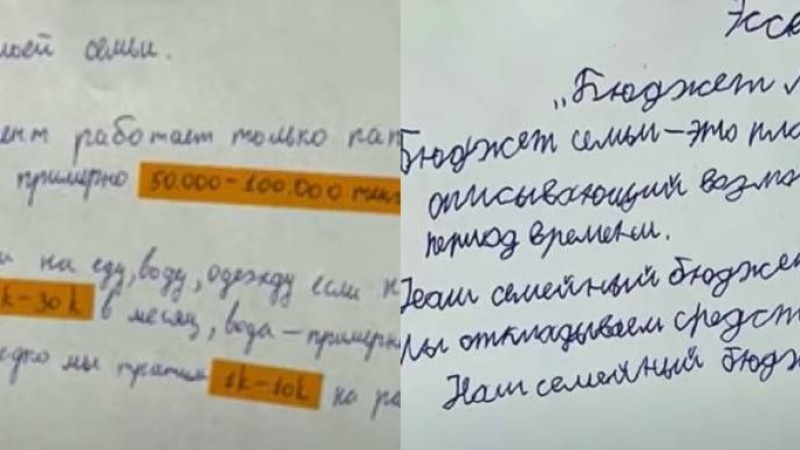 моей семьи.
работает только пап
примерно 50.000-100.000 тенг
на еду, воду, одежду если н
k-30k в месяц, вода - примерн
мы тратим 1k-10k на ра
Эссе
„Бюджет м
Бюджет семьи - это пла
описывающий возмо
период времени.
Наш семейный бюдже
мы откладываем средст
Наш семейный бюдж